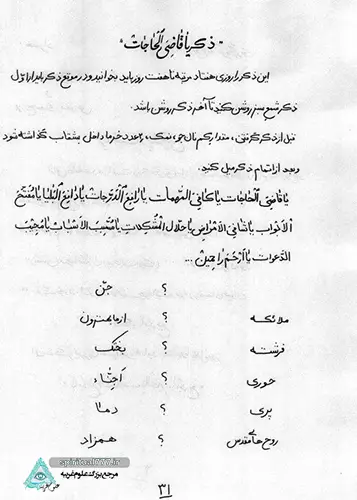 "ذکر یا قاضی الحاجات"
این ذکر را روزی هفتاد مرتبه تا هفت روز باید بخوانید و در موقع ذکر باید از اول
ذکر شمع سبز روشن کنید تا آخر ذکر روشن باشد.
قبل از ذکر گرفتن، مقدار کم نان جوی نمک، عدد خرما داخل بشقاب گذاشته شود
و بعد از اتمام ذکر میل کنید.
یا قاضِیَ الحاجات یا کافِیَ المُهِمات یا رافِعَ الدَّرَجات یا دافِعَ البَلیات یا مُفَتِّحَ
الاَبواب یا شافِیَ الاَمراض یا حَلالَ المُشکِلات یا مُسَبِّبَ الاَسباب یا مُجیبَ
الدَّعَوات یا اَرحَمَ راحِمین ...
؟ جن
ملائکه ؟ از ما بهتران
فرشته ؟ بختک
حوری ؟ اجنّاء
پری ؟
روح های مقدس ؟ همزاد
۳۱
مرجع بزرگ علوم غریبه